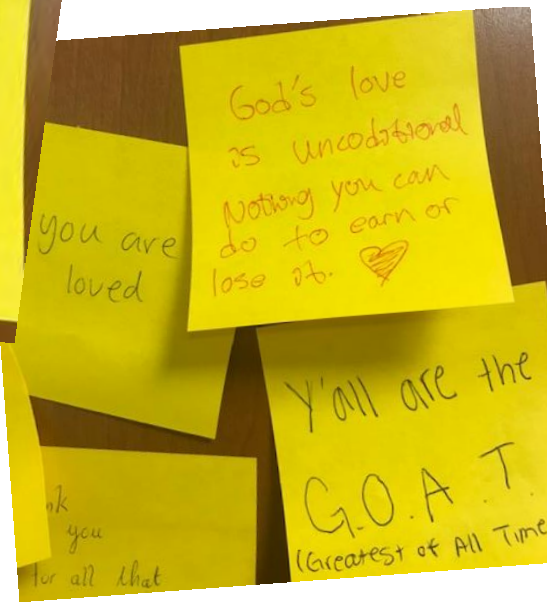 God's love
is uncoditional
Nothing you can
do to earn or
lose it.
you are
loved
Y'all are the
G.O.A.T.
(Greatest of All Time
nk
you
for all that